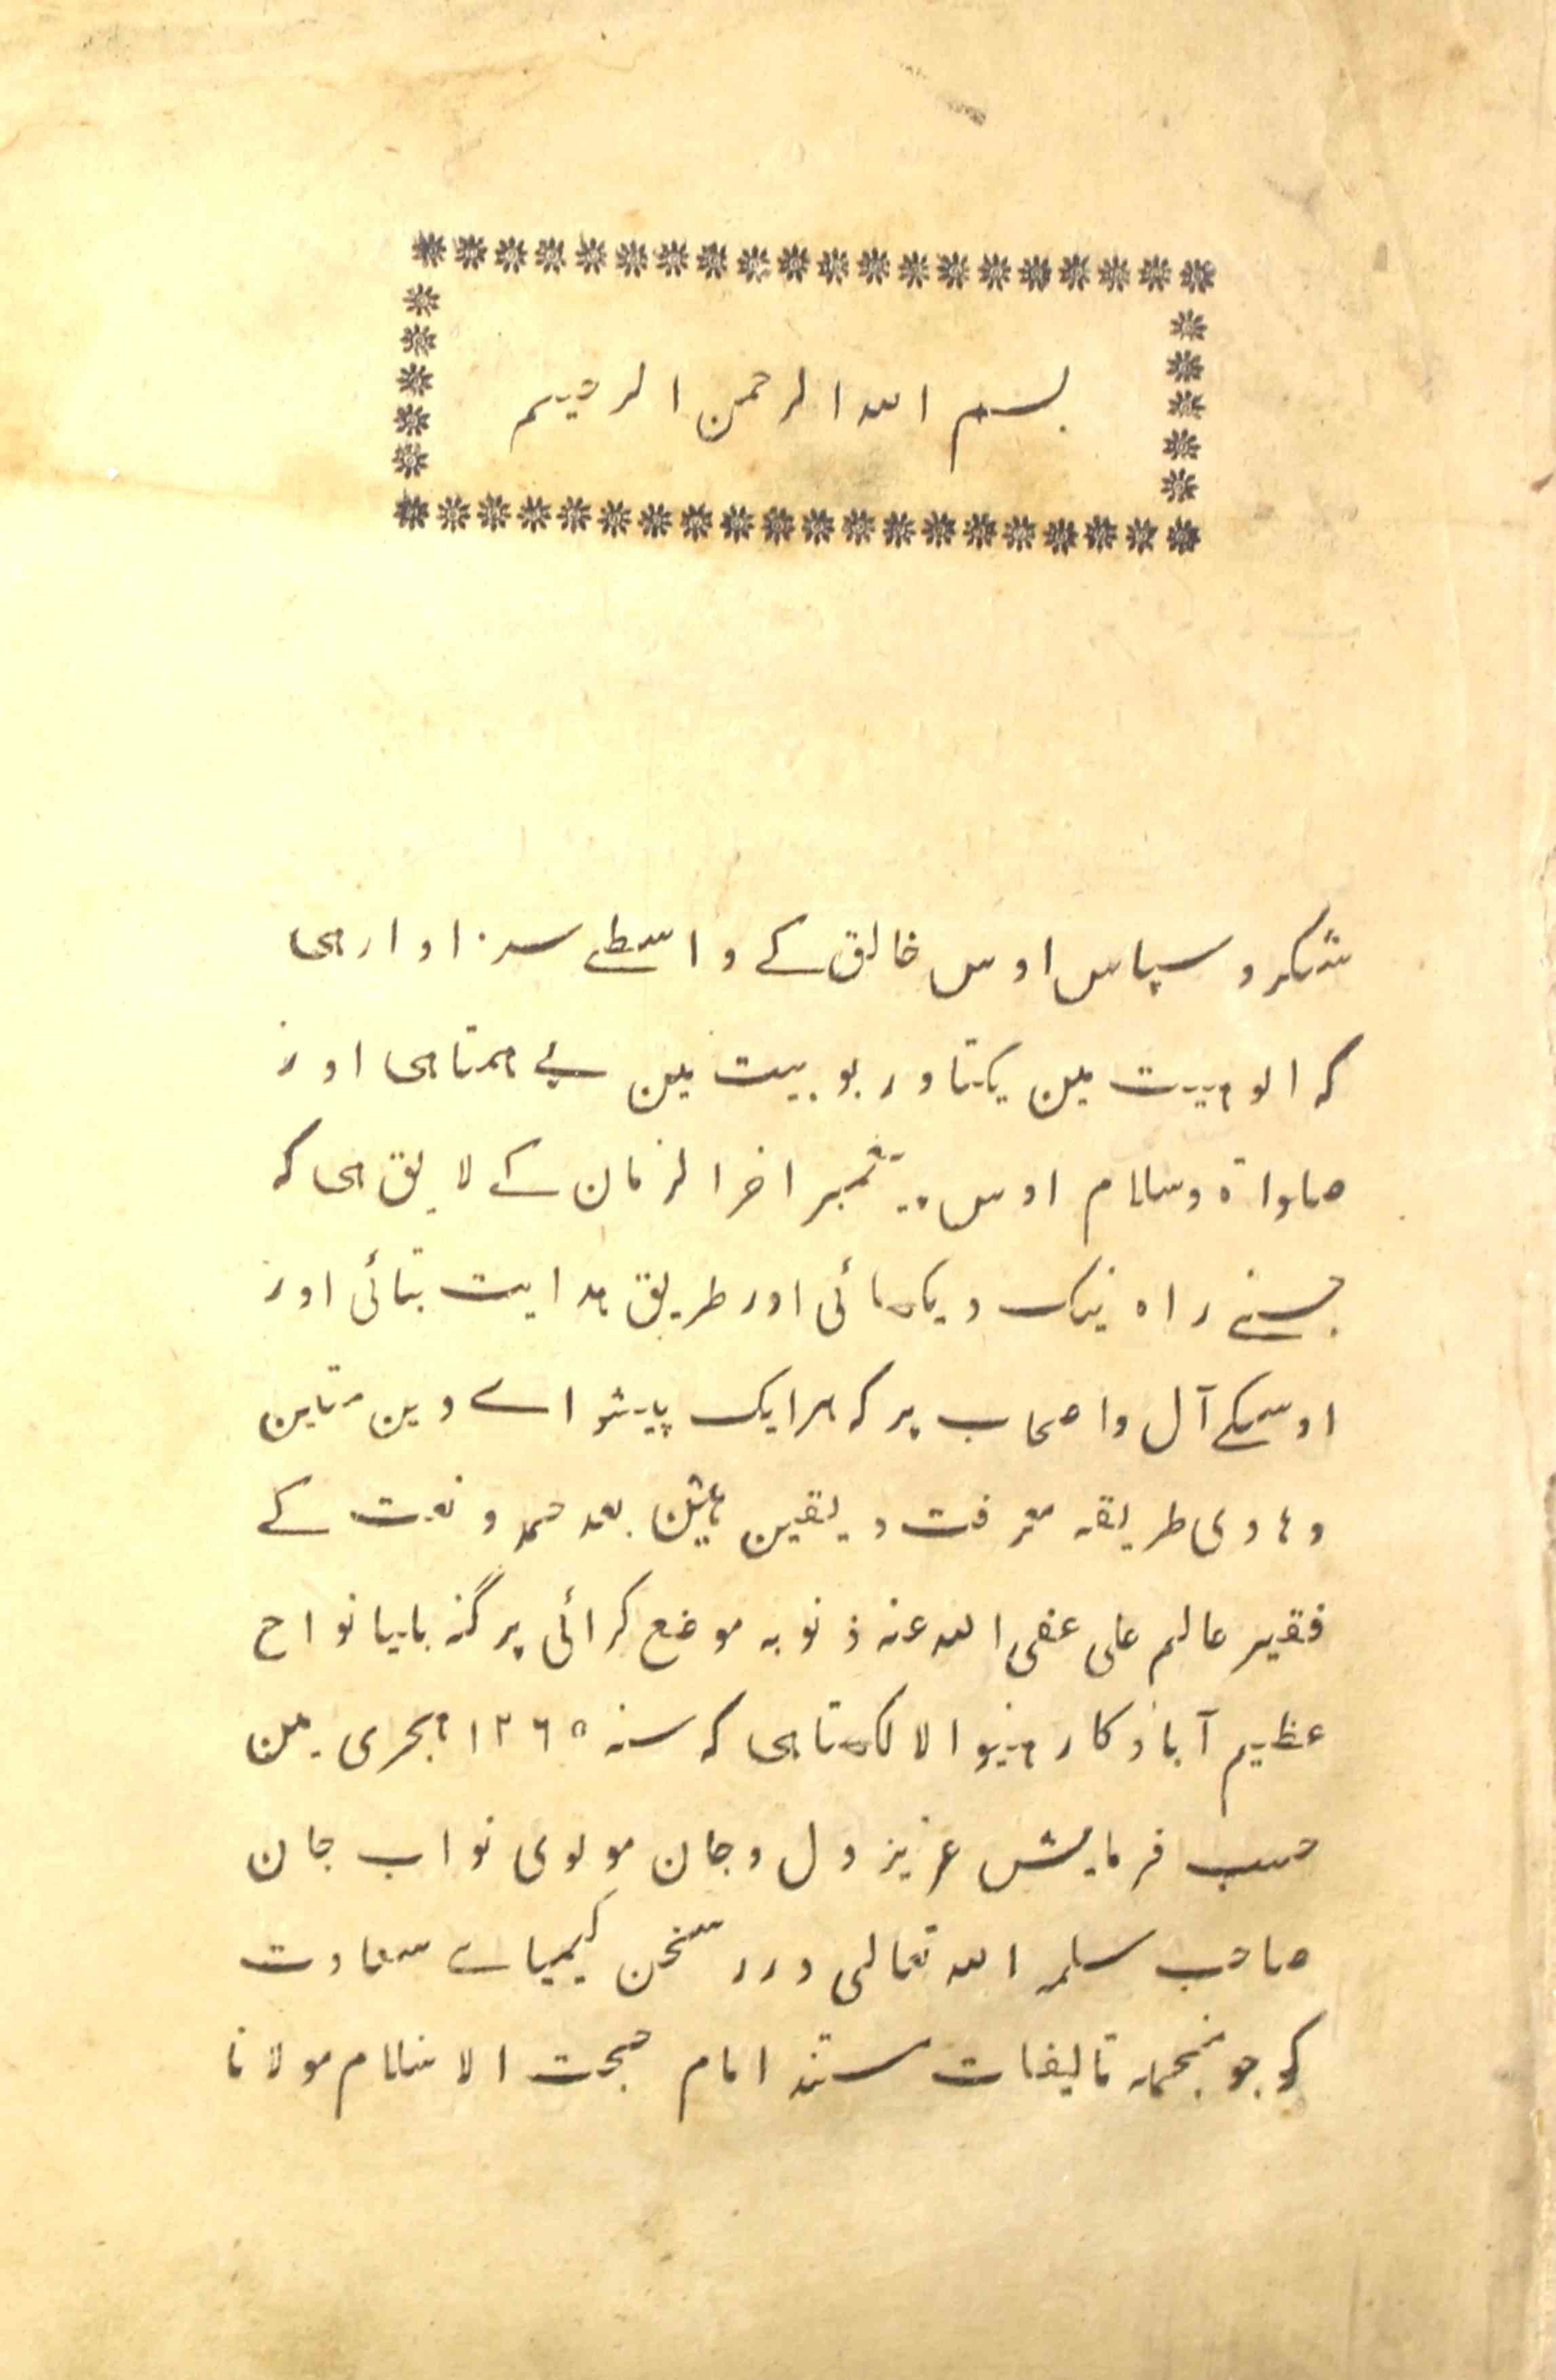 بسم الله الرحمن الرحیم
شکر و سپاس اوس خالق کے واسطے سزاوار ہی
کہ الوہیت مین یکتا و ربوبیت مین بے ہمتا ہی اور
صلواۃ و سلام اوس پیغمبر اخر الزمان کے لایق ہی کہ
جسنے راہ نیک دیکھائی اور طریق ہدایت بتائی اور
اوسکے آل و اصحاب پر کہ ہر ایک پیشواے دین متین
و ہادی طریقہ معرفت و یقین ہین بعد حمد و نعت کے
فقیر عالم علی عفی الله عنہ ذنوبہ موضع کرائی پرگنہ بلیا نواح
عظیم آباد کا رہنیوالا لکھتا ہی کہ سنہ ۱۲۶۵ ہجری مین
حسب فرمایش عزیز دل و جان مولوی نواب جان
صاحب سلمہ الله تعالی درر سخن کیمیاے سعادت
کو جو منجملہ تالیفات مستند امام حجت الاسلام مولانا